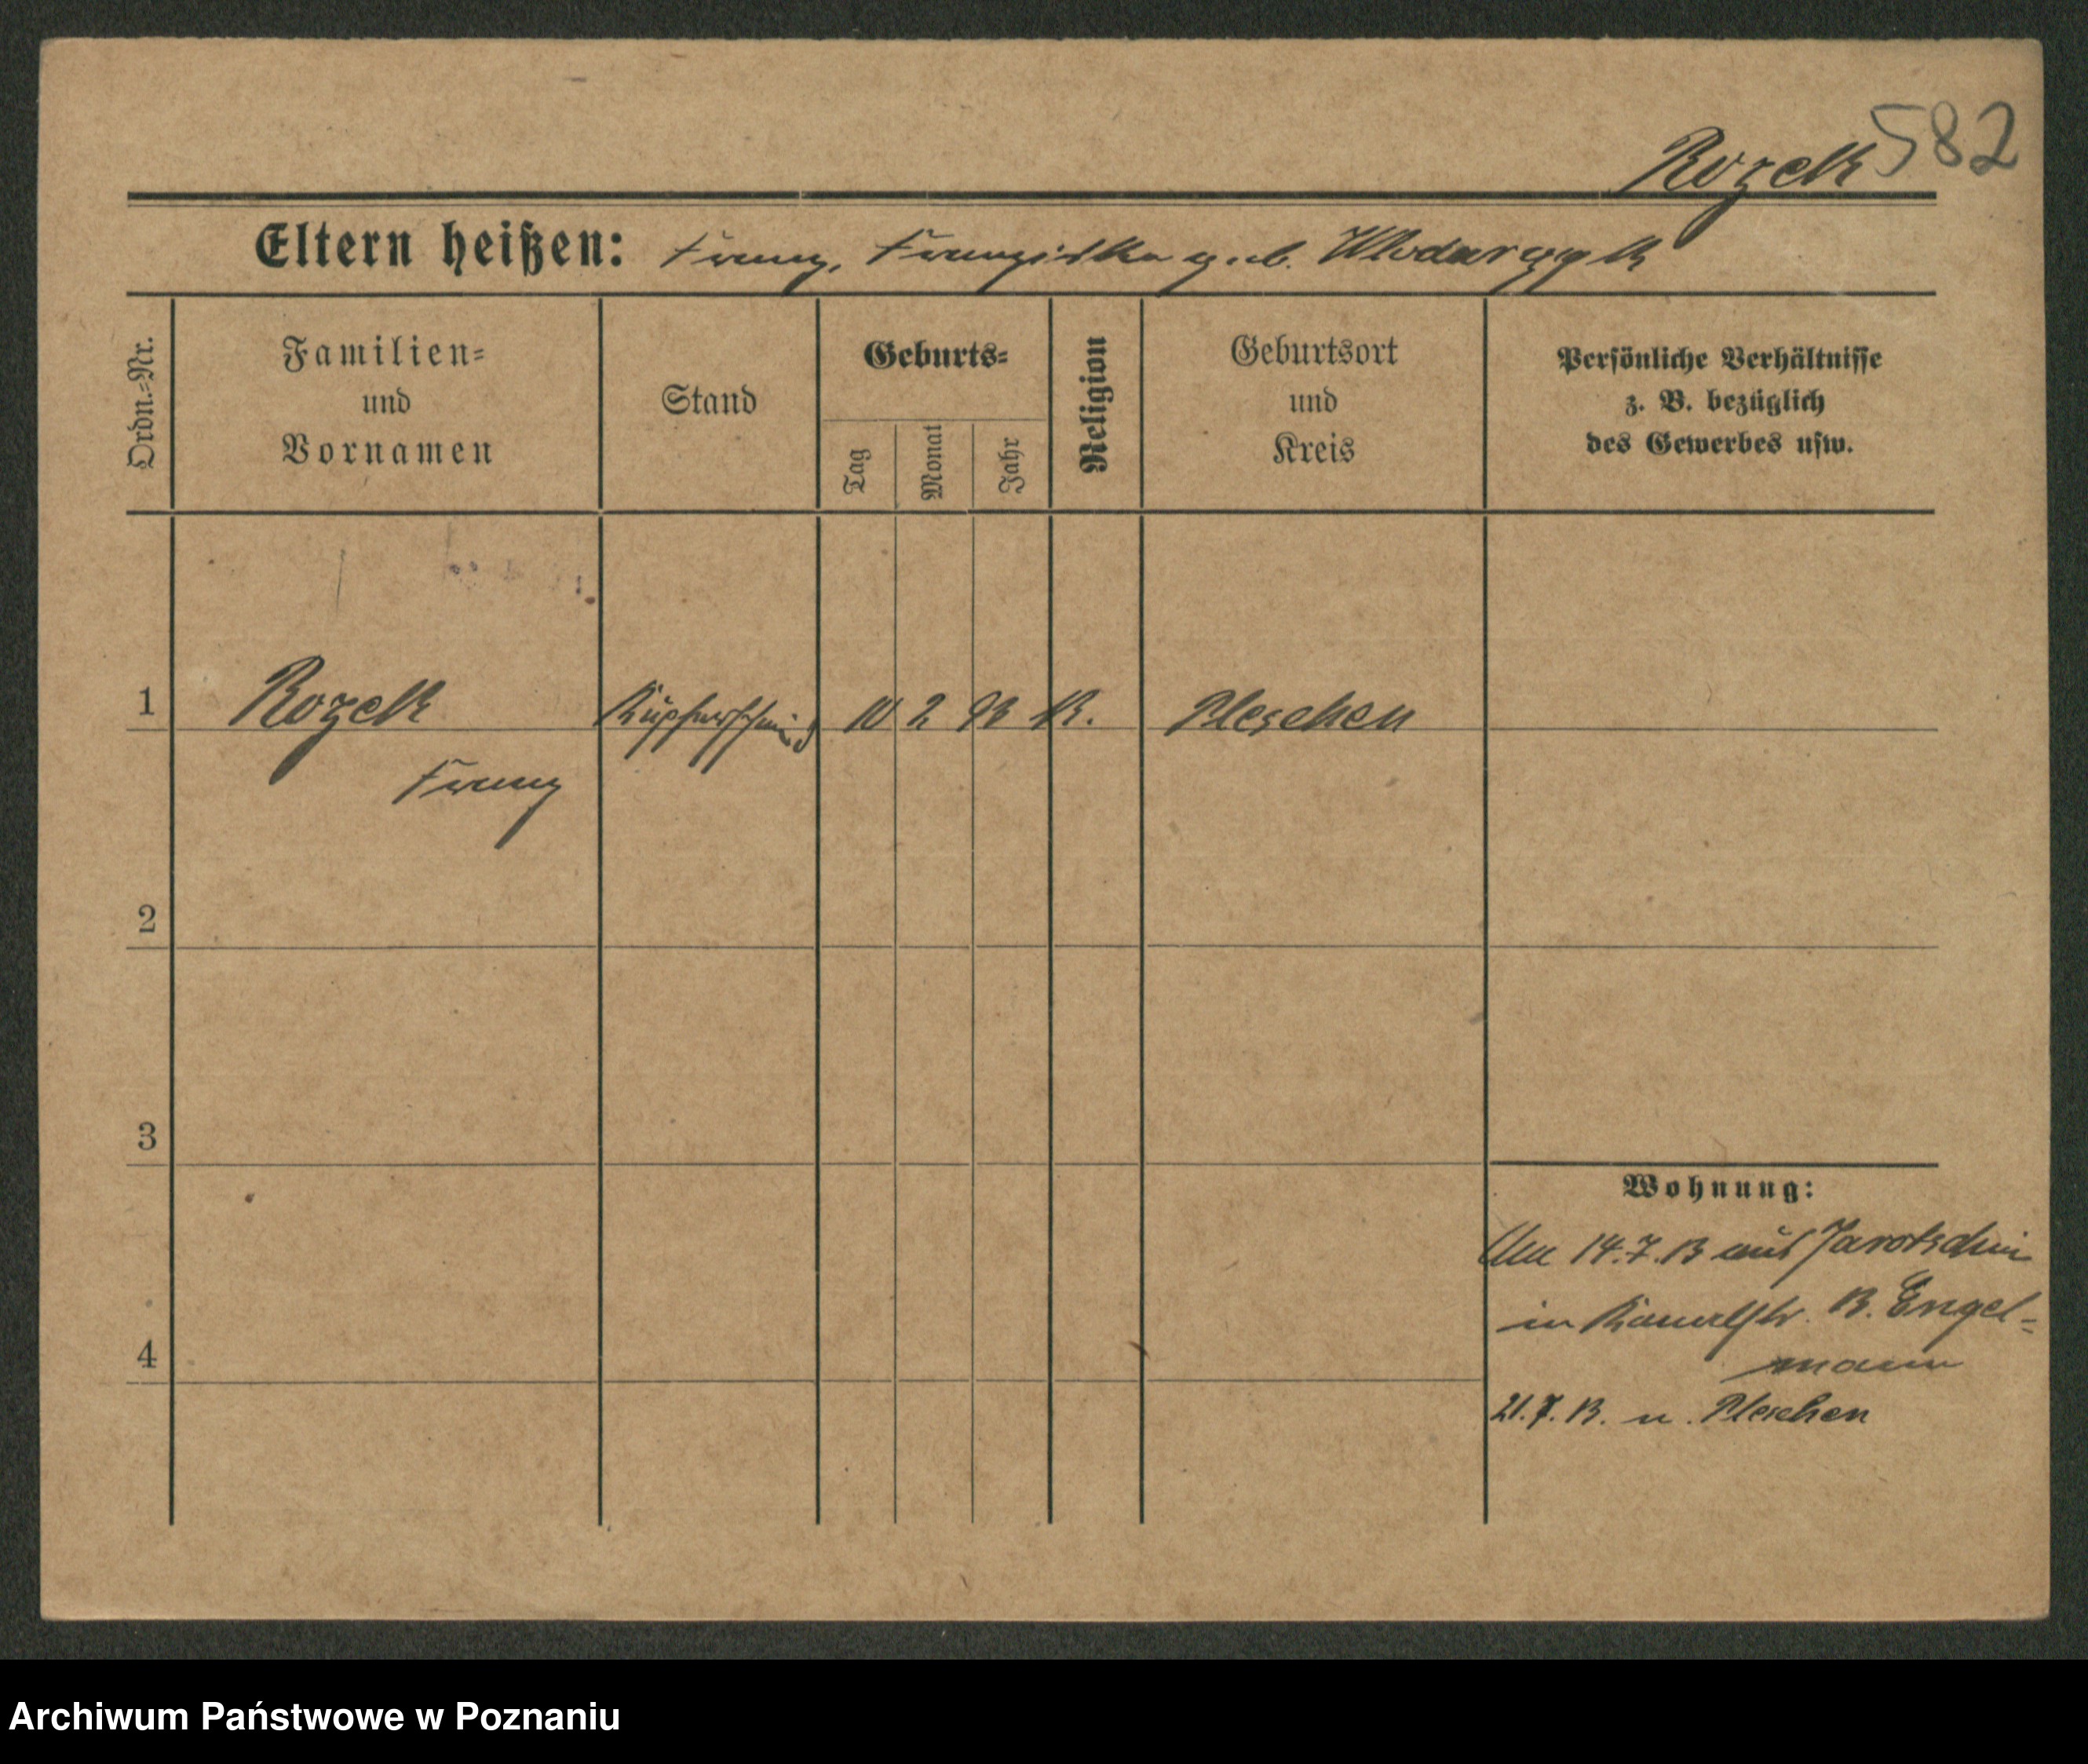 582
Rozek
Eltern heißen: Franz, Franziska geb. Wlodarczyk
Ordn.-Nr.
Familien-
und
Vornamen
Stand
Geburts-
Tag
Monat
Jahr
Religion
Geburtsort
und
Kreis
Persönliche Verhältnisse
z. B. bezüglich
des Gewerbes usw.
1 Rozek Kupferschmied 10 2 93 K. Pleschen
Franz
2
3
4
Wohnung:
14.7.13 aus Jarotschin
in B. Engel-
mann
21.7.13. n. Pleschen
Archiwum Państwowe w Poznaniu